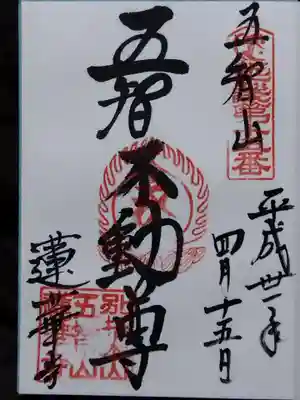 五智山
平成卅一年
四月十五日
五智
不動尊
蓮華寺